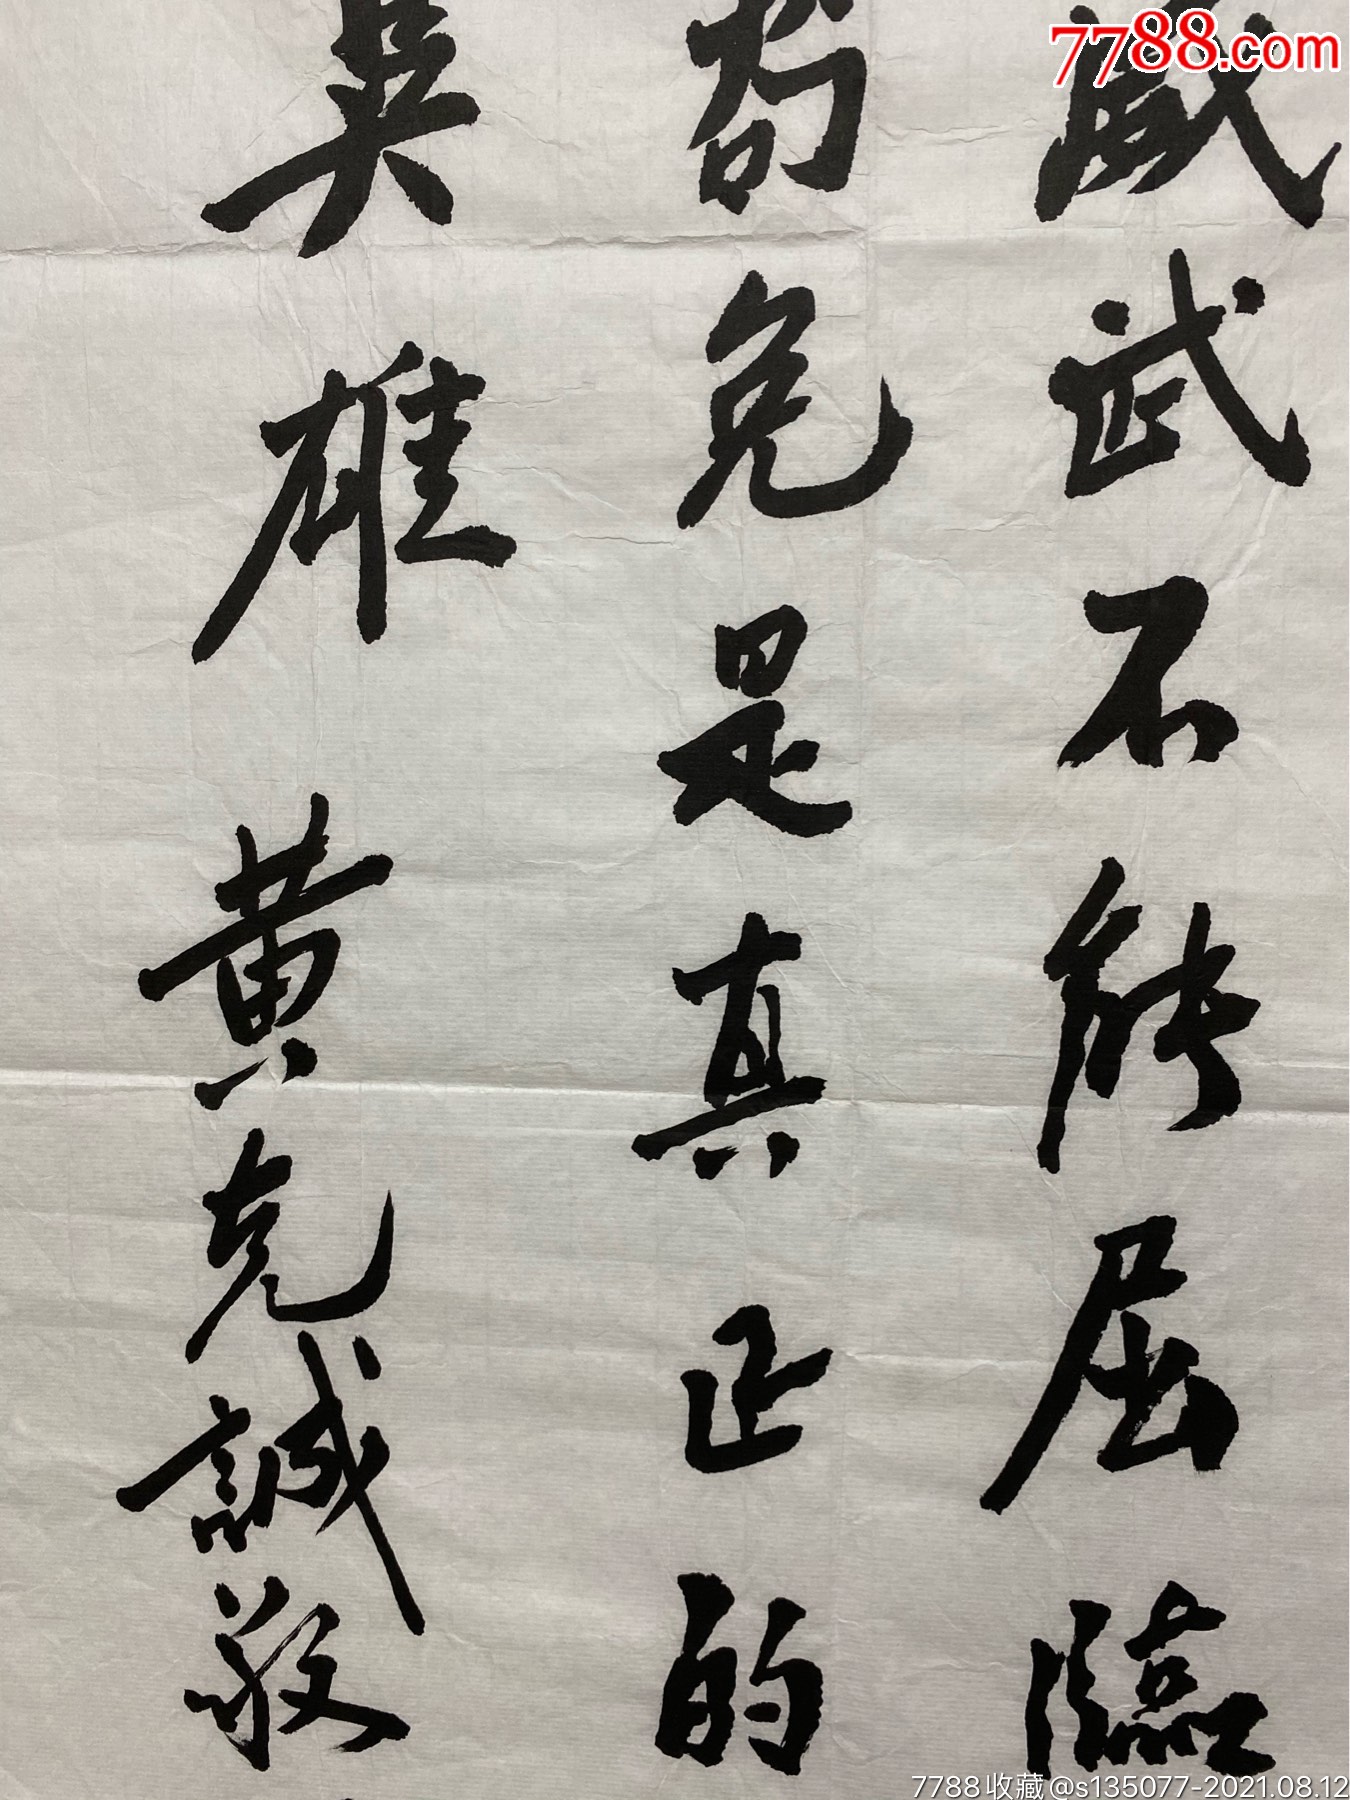 7788.com
威武不能屈臨
苟免是真正的
英雄 黄克誠敬
7788收藏@s135077-2021.08.12